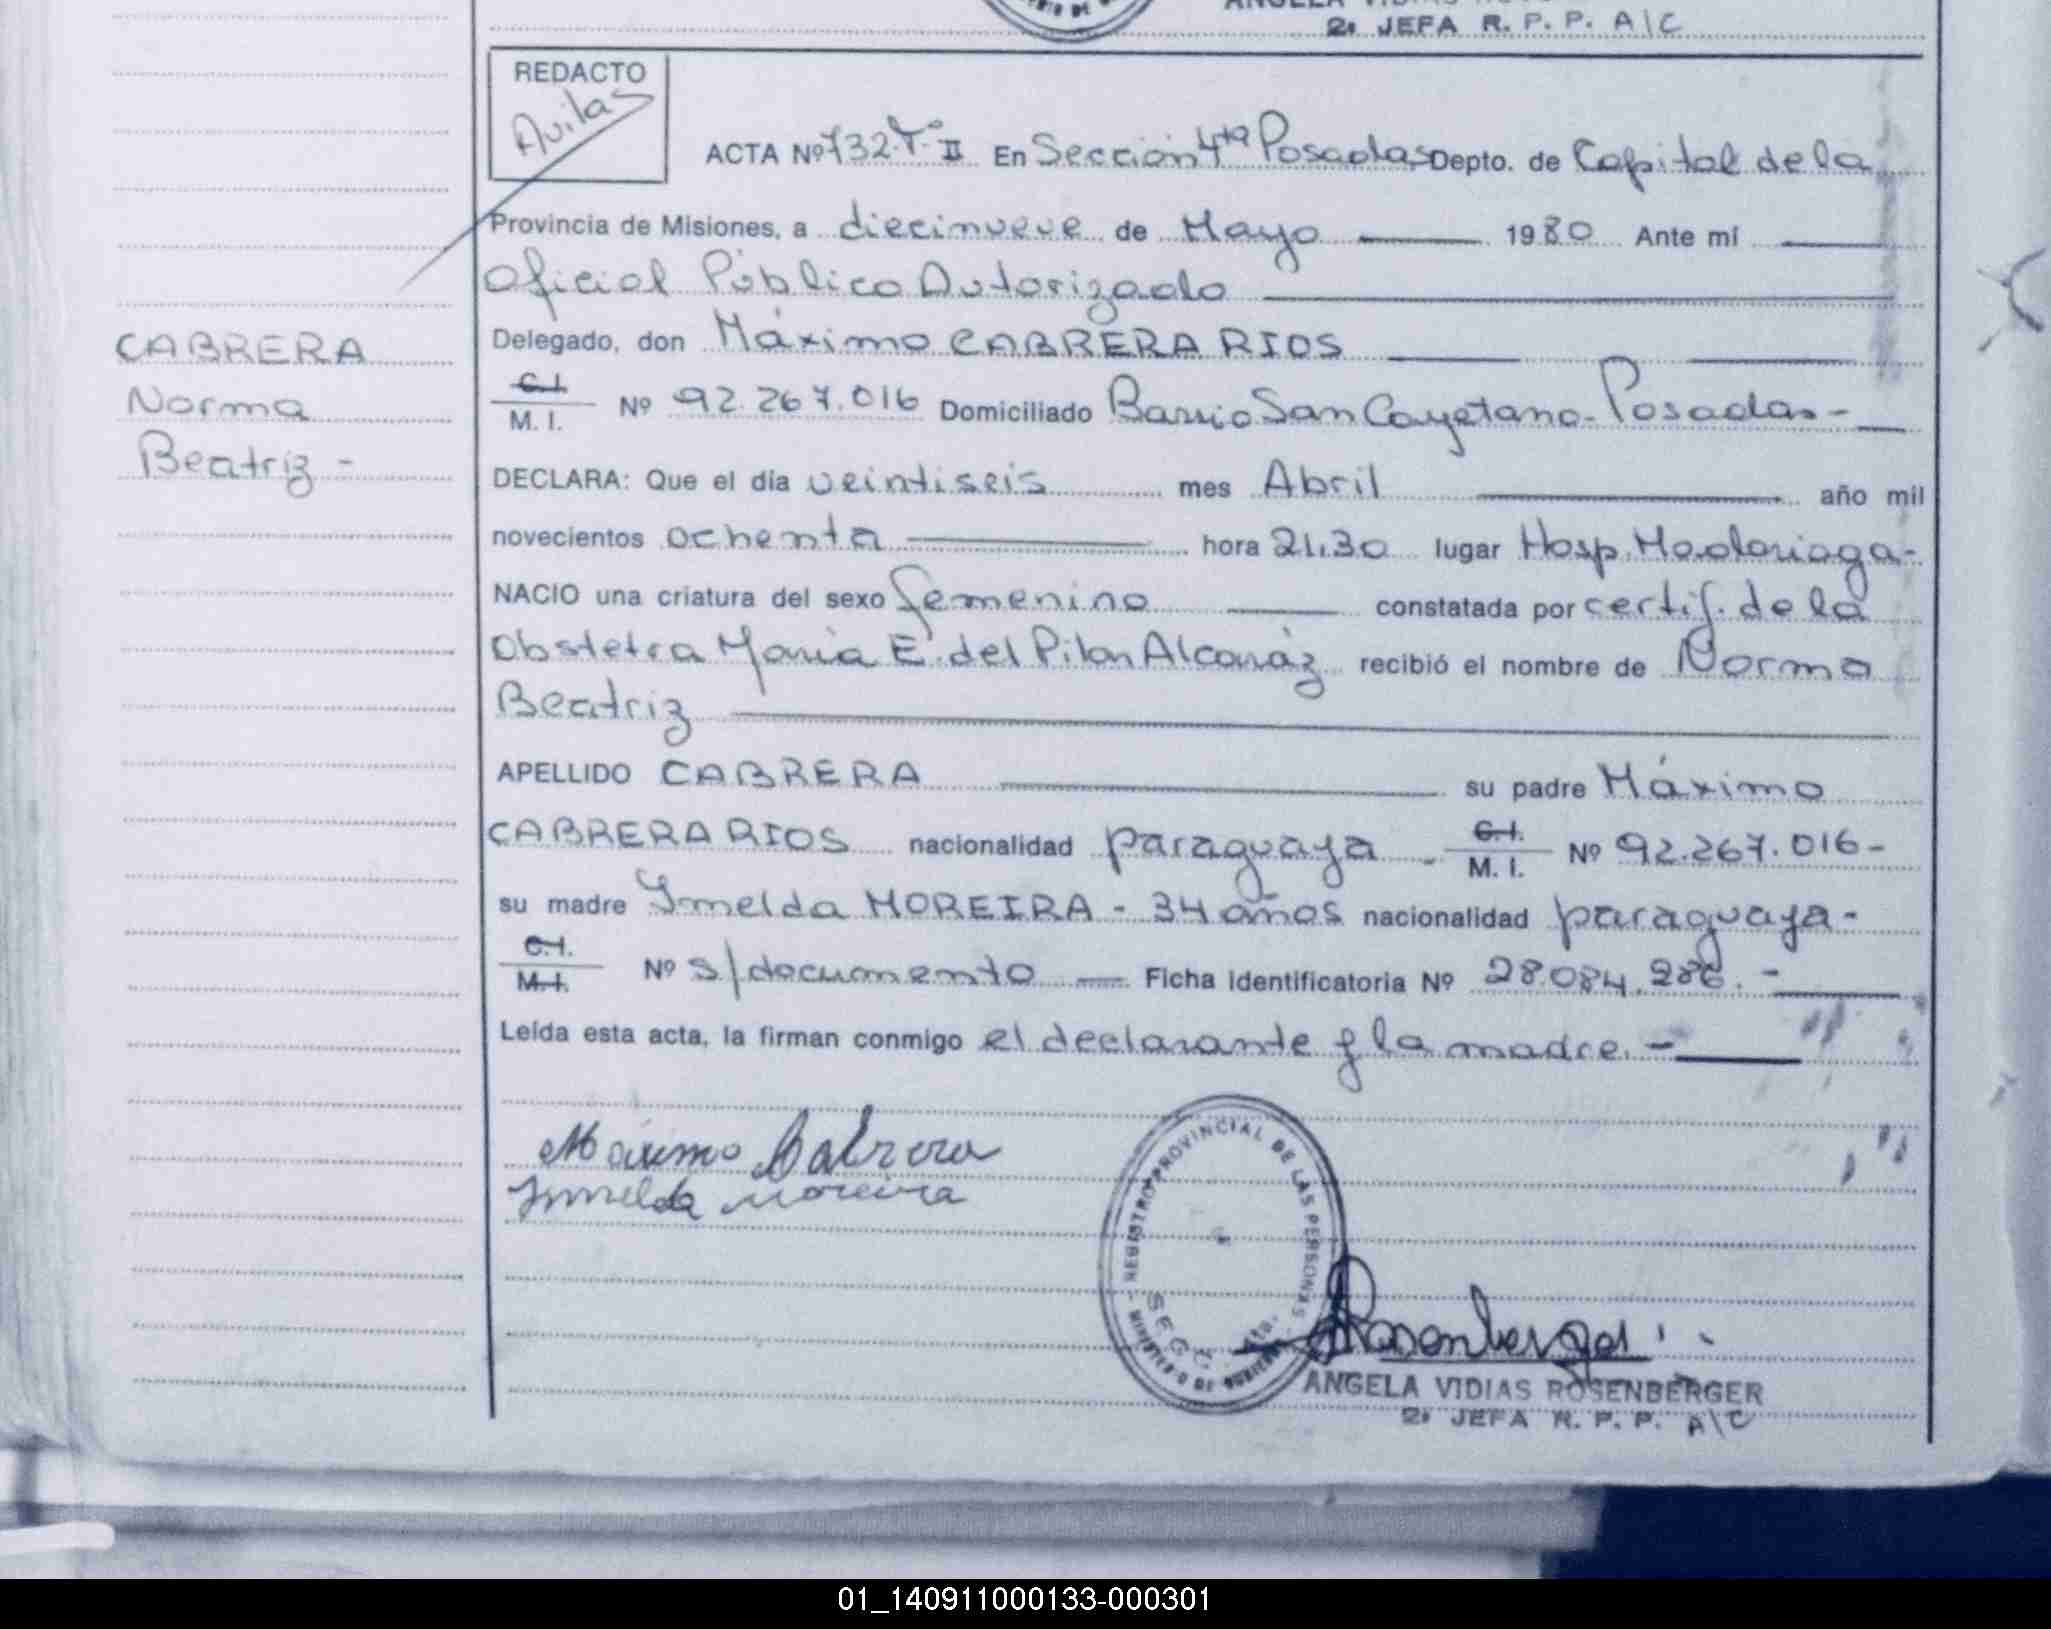 2º JEFA R. P. P. A/C
REDACTO
Avilas
ACTA Nº 732 Tº II En Sección 4ta Posadas Depto. de Capital de la
Provincia de Misiones, a diecinueve de Mayo 1980 Ante mí
Oficial Público Autorizado
Delegado, don Máximo CABRERA RIOS
C.I.
M. I. Nº 92.267.016 Domiciliado Barrio San Cayetano-Posadas-
CABRERA
Norma
Beatriz -
DECLARA: Que el día veintiseis mes Abril año mil
novecientos ochenta hora 21,30 lugar Hosp. Madariaga-
NACIO una criatura del sexo femenino constatada por certif. de la
Obstetra María E. del Pilar Alcaráz recibió el nombre de Norma
Beatriz
APELLIDO CABRERA su padre Máximo
CABRERA RIOS nacionalidad paraguaya - C.I.
M. I. Nº 92.267.016-
su madre Ymelda MOREIRA - 34 años nacionalidad paraguaya-
C.I.
M.I. Nº s/documento Ficha identificatoria Nº 28.084.286. -
Leída esta acta, la firman conmigo el declarante y la madre. -
Máximo Cabrera
Ymelda Moreira
REGISTRO PROVINCIAL DE LAS PERSONAS
MINISTERIO DE GOBIERNO
SECC. 4ta.
Rosenberger
ANGELA VIDIAS ROSENBERGER
2º JEFA R. P. P. A/C
01_140911000133-000301